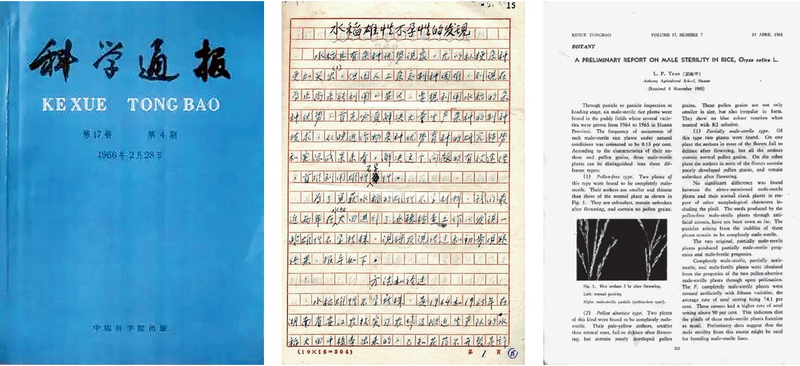 科学通报
KEXUE TONGBAO
第17卷 第4期
1966年2月28日
中国科学院出版
15
水稻雄性不孕性的发现
水稻具有杂种优势现象，尤以籼粳杂种
更加突出，但因人工杂交制种困难，到现在
为止尚未能利用。显然，要想利用水稻的杂
种优势，首先必须解决大量生产杂种的种子
技术。从晚近作物杂种优势育种的研究趋势
和实际成果来看，解决这个问题的有效途径
，首推利用雄性不孕性。
为了获得水稻的雄性不孕材料，我们最
近两年在大田进行了逐穗检查工作，发现一
些雄性不孕植株，
结果，报导如下。
方法和经过
水稻雄性不孕植株，是1964和1965年在
湖南省安江农校实习农场及附近生产队的水
稻大田中检查出来的。
(19×16=304)
第 1 页
KEXUE TONGBAO VOLUME 17, NUMBER 7 15 APRIL 1966
BOTANY
A PRELIMINARY REPORT ON MALE STERILITY IN RICE, Oryza sativa L.
L. P. YUAN (袁隆平)
Ankiang Agricultural School, Hunan
(Received 8 November 1965)
Through panicle to panicle inspection at
heading stage, six male-sterile rice plants were
found in the paddy fields where several varie-
ties were grown from 1964 to 1965 in Hunan
Province. The frequency of occurrence of
such male-sterile rice plants under natural
conditions was estimated to be 0.13 per cent.
According to the characteristics of their an-
thers and pollen grains, these male-sterile
plants can be distinguished into three dif-
ferent types:
(1) Pollen-free type. Two plants of
this type were found to be completely male-
sterile. Their anthers are smaller and thinner
than those of the normal plant as shown in
Fig. 1. They are indehiscent, remain unbroken
after flowering, and contain no pollen grains.
Fig. 1. Rice anthers after flowering.
Left: normal panicle;
Right: male-sterile panicle (pollen-free type).
(2) Pollen abortive type. Two plants
of this kind were found to be completely male-
sterile. Their pale-yellow anthers, smaller
than normal ones, fail to dehisce after flower-
ing, but contain poorly developed pollen
grains. These pollen grains are not only
smaller in size, but also irregular in form.
They show no blue colour reaction when
treated with KI solution.
(3) Partially male-sterile type. Of
this type two plants were found. On one
plant the anthers in most of the florets fail to
dehisce after flowering, but all the anthers
contain normal pollen grains. On the other
plant the anthers in most of the florets contain
poorly developed pollen grains, and remain
unbroken after flowering.
No significant difference was found
between the above-mentioned male-sterile
plants and their normal check plants in res-
pect of other morphological characters in-
cluding the pistil. The seeds produced by the
pollen-free male-sterile plants through arti-
ficial crosses, have not been sown so far. The
panicles arising from the stubbles of these
plants remain to be completely male-sterile.
The two original, partially male-sterile
plants produced partially male-sterile prog-
enies and male-fertile progenies.
Completely male-sterile, partially male-
sterile, and male-fertile plants were obtained
from the progenies of the two pollen-abortive
male-sterile plants through open pollination.
The F1 completely male-sterile plants were
crossed artificially with fifteen varieties, the
average rate of seed setting being 74.1 per
cent. Three crosses had a higher rate of seed
setting above 90 per cent. This indicates that
the pistils of these male-sterile plants function
as usual. Preliminary data suggest that the
male sterility from this source might be used
for breeding male-sterile lines.
322